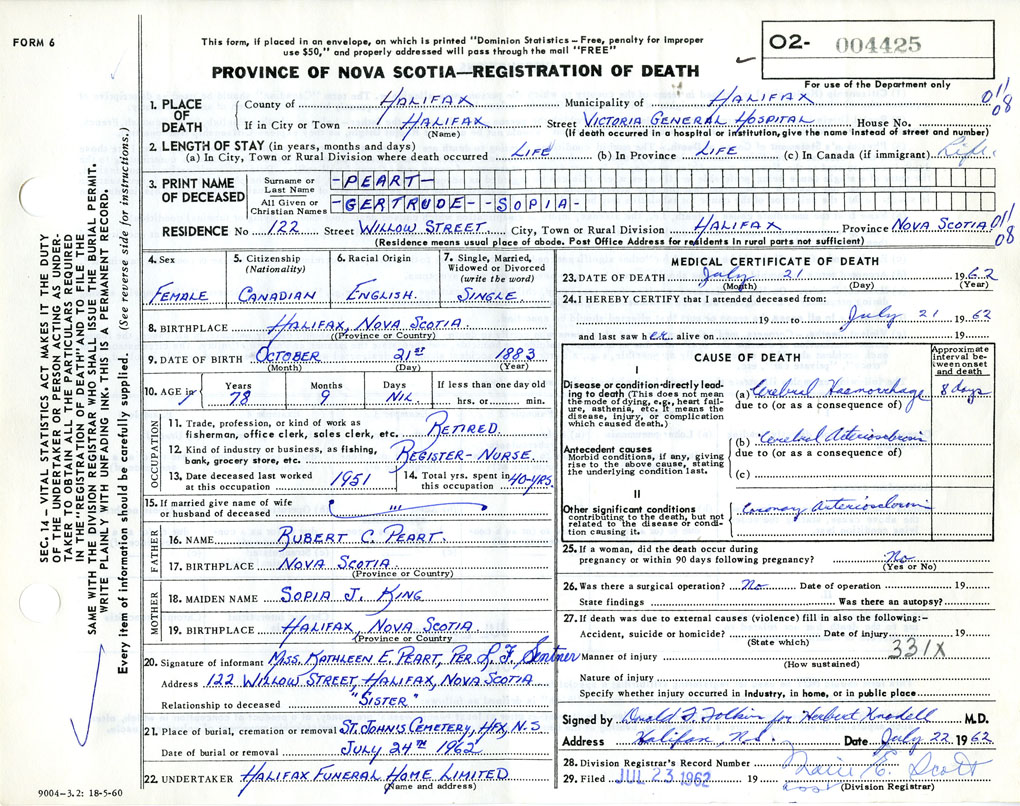 FORM 6
This form, if placed in an envelope, on which is printed "Dominion Statistics – Free, penalty for improper
use $50," and properly addressed will pass through the mail "FREE"
PROVINCE OF NOVA SCOTIA—REGISTRATION OF DEATH
O2- 004425
For use of the Department only
011/08
1. PLACE OF DEATH
County of HALIFAX Municipality of HALIFAX
If in City or Town HALIFAX Street VICTORIA GENERAL HOSPITAL House No.
(Name) (If death occurred in a hospital or institution, give the name instead of street and number)
2. LENGTH OF STAY (in years, months and days)
(a) In City, Town or Rural Division where death occurred LIFE (b) In Province LIFE (c) In Canada (if immigrant) Life.
3. PRINT NAME OF DECEASED
Surname or Last Name -PEART-
All Given or Christian Names -GERTRUDE--SOPIA-
RESIDENCE No 122 Street WILLOW STREET City, Town or Rural Division HALIFAX Province NOVA SCOTIA 011/08
(Residence means usual place of abode. Post Office Address for residents in rural parts not sufficient)
4. Sex FEMALE
5. Citizenship (Nationality) CANADIAN
6. Racial Origin ENGLISH.
7. Single, Married, Widowed or Divorced (write the word) SINGLE.
8. BIRTHPLACE HALIFAX, NOVA SCOTIA.
(Province or Country)
9. DATE OF BIRTH OCTOBER 21ST 1883
(Month) (Day) (Year)
10. AGE in Years 78 Months 9 Days NIL. If less than one day old hrs. or min.
OCCUPATION
11. Trade, profession, or kind of work as
fisherman, office clerk, sales clerk, etc. RETIRED.
12. Kind of industry or business, as fishing,
bank, grocery store, etc. REGISTER-NURSE.
13. Date deceased last worked
at this occupation 1951
14. Total yrs. spent in
this occupation 40-YRS.
15. If married give name of wife
or husband of deceased "'
FATHER
16. NAME RUBERT C. PEART.
17. BIRTHPLACE NOVA SCOTIA
(Province or Country)
MOTHER
18. MAIDEN NAME SOPIA J. KING
19. BIRTHPLACE HALIFAX, NOVA SCOTIA
(Province or Country
20. Signature of informant MISS. KATHLEEN E. PEART, PER L F. Sentner
Address 122 WILLOW STREET, HALIFAX, NOVA SCOTIA
Relationship to deceased "SISTER"
21. Place of burial, cremation or removal ST. JOHNS CEMETERY, HFX, N.S
Date of burial or removal JULY 24TH 1962
22. UNDERTAKER HALIFAX FUNERAL HOME LIMITED.
(Name and address)
MEDICAL CERTIFICATE OF DEATH
23. DATE OF DEATH July 21 1962
(Month) (Day) (Year)
24. I HEREBY CERTIFY that I attended deceased from:
19 to July 21 1962
and last saw her alive on 19
CAUSE OF DEATH
Approximate interval between onset and death
I
Disease or condition directly leading to death (This does not mean the mode of dying, e.g., heart failure, asthenia, etc. It means the disease, injury, or complication which caused death.)
(a) Cerebral Haemorrhage 8 days
due to (or as a consequence of)
Antecedent causes
Morbid conditions, if any, giving rise to the above cause, stating the underlying condition last.
(b) Cerebral Arteriosclerosis
due to (or as a consequence of)
(c)
II
Other significant conditions contributing to the death, but not related to the disease or condition causing it.
Coronary Arteriosclerosis
25. If a woman, did the death occur during
pregnancy or within 90 days following pregnancy? No
(Yes or No)
26. Was there a surgical operation? No Date of operation 19
State findings Was there an autopsy?
27. If death was due to external causes (violence) fill in also the following:-
Accident, suicide or homicide? Date of injury 19
(State which) 331X
Manner of injury
(How sustained)
Nature of injury
Specify whether injury occurred in industry, in home, or in public place
Signed by Donald F. Folkins for Herbert Knodell M.D.
Address Halifax, N.S. Date July 22 1962
28. Division Registrar's Record Number
29. Filed JUL 23 1962 19 Marie E. Scott
(Division Registrar)
SEC. 14 – VITAL STATISTICS ACT MAKES IT THE DUTY
OF THE UNDERTAKER OR PERSON ACTING AS UNDER-
TAKER TO OBTAIN ALL THE PARTICULARS REQUIRED
IN THE "REGISTRATION OF DEATH" AND TO FILE THE
SAME WITH THE DIVISION REGISTRAR WHO SHALL ISSUE THE BURIAL PERMIT.
WRITE PLAINLY WITH UNFADING INK. THIS IS A PERMANENT RECORD.
Every item of information should be carefully supplied. (See reverse side for instructions.)
9004-3.2: 18-5-60